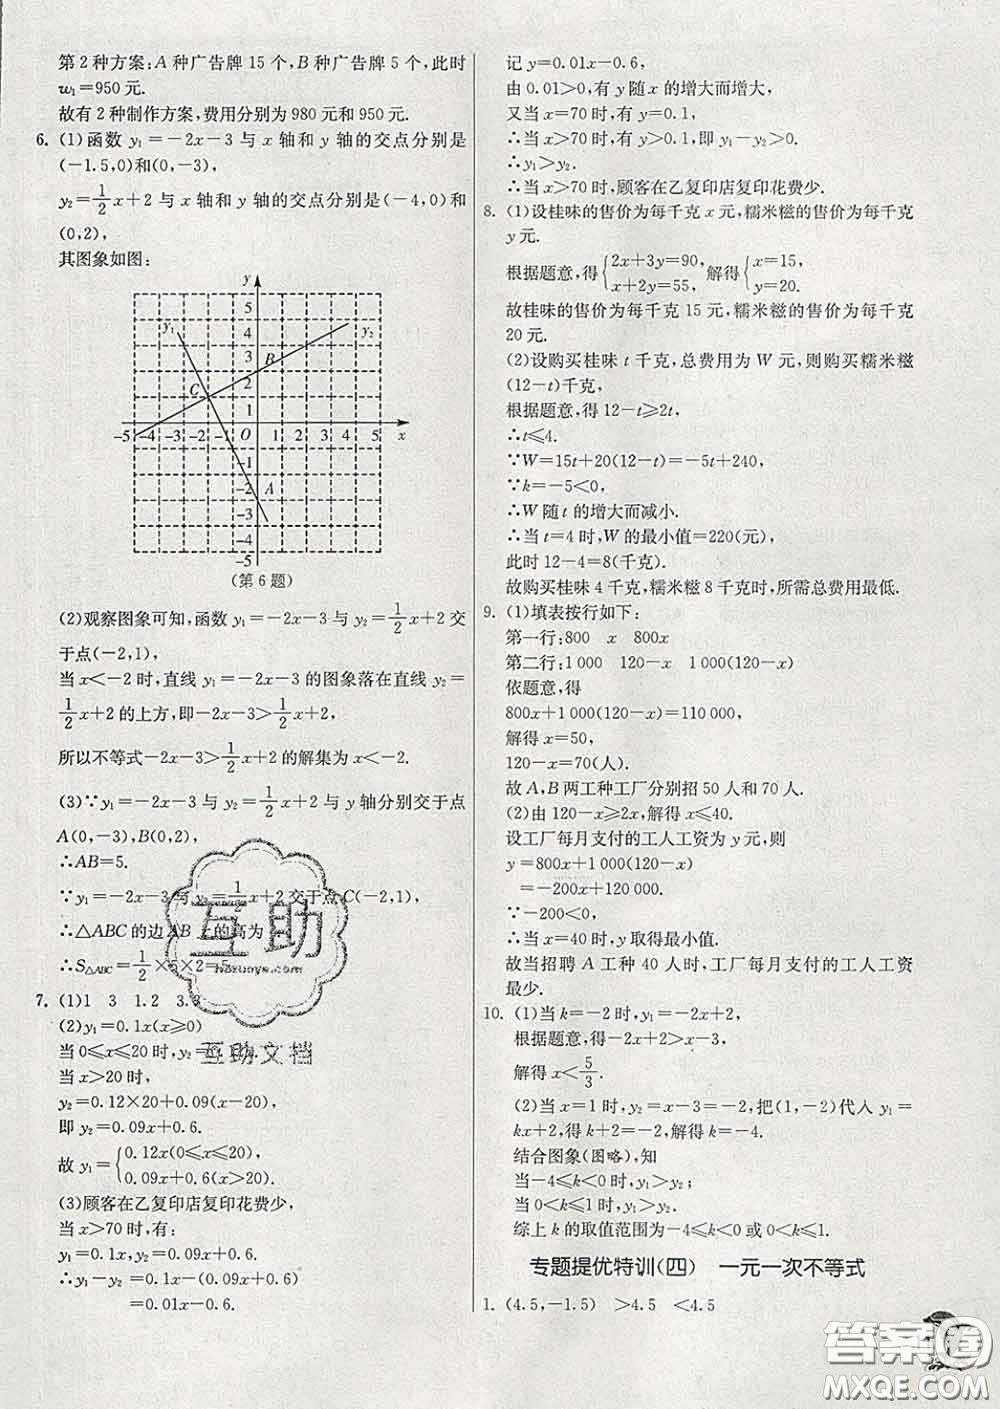 第2种方案:A 种广告牌 15 个,B 种广告牌 5 个,此时
w₁=950元.
故有2种制作方案,费用分别为 980元和 950元.
6. (1)函数 y₁=-2x-3 与 x 轴和 y 轴的交点分别是
(-1.5,0)和(0,-3),
y₂=1/2x+2 与 x 轴和 y 轴的交点分别是(-4,0)和
(0,2),
其图象如图:
y
5
y₁ 4 y₂
3 B
C 2
1
-5 -4 -3 -2 -1 O 1 2 3 4 5 x
-1
-2 A
-3
-4
-5
(第6题)
(2)观察图象可知,函数 y₁=-2x-3与 y₂=1/2x+2交
于点(-2,1),
当 x<-2时,直线 y₁=-2x-3的图象落在直线 y₂=
1/2x+2的上方,即-2x-3>1/2x+2,
所以不等式-2x-3>1/2x+2的解集为 x<-2.
(3)∵y₁=-2x-3 与 y₂=1/2x+2与 y 轴分别交于点
A(0,-3),B(0,2),
∴AB=5.
∵y₁=-2x-3与 y₂=1/2x+2交于点C(-2,1),
∴△ABC的边AB上的高为
∴S△ABC=1/2×5×2=5.
7. (1)1 3 1.2 3.3
(2)y₁=0.1x(x≥0)
当 0≤x≤20时,y₂=
当 x>20时,
y₂=0.12×20+0.09(x-20),
即 y₂=0.09x+0.6.
故 y₁={0.12x(0≤x≤20),
0.09x+0.6(x>20).
(3)顾客在乙复印店复印花费少,
当 x>70时,有:
y₁=0.1x,y₂=0.09x+0.6.
∴y₁-y₂=0.1x-(0.09x+0.6)
=0.01x-0.6.
记 y=0.01x-0.6,
由 0.01>0,有 y 随 x 的增大而增大,
又当 x=70时,有 y=0.1.
∴当 x>70时,有 y>0.1,即 y₁-y₂>0.
∴y₁>y₂.
∴当 x>70时,顾客在乙复印店复印花费少.
8. (1)设桂味的售价为每千克 x 元,糯米糍的售价为每千克
y 元.
根据题意,得{2x+3y=90, x+2y=55, 解得{x=15, y=20.
故桂味的售价为每千克 15 元,糯米糍的售价为每千克
20元.
(2)设购买桂味 t 千克,总费用为 W 元,则购买糯米糍
(12-t)千克,
根据题意,得 12-t≥2t,
∴t≤4.
∵W=15t+20(12-t)=-5t+240,
∵k=-5<0,
∴W 随 t 的增大而减小.
∴当 t=4时,W 的最小值=220(元),
此时 12-4=8(千克).
故购买桂味 4 千克,糯米糍 8 千克时,所需总费用最低.
9. (1)填表按行如下:
第一行:800 x 800x
第二行:1 000 120-x 1 000(120-x)
依题意,得
800x+1 000(120-x)=110 000,
解得 x=50,
120-x=70(人).
故 A,B 两工种工厂分别招 50人和 70人.
(2)由 120-x≥2x,解得 x≤40.
设工厂每月支付的工人工资为 y 元,则
y=800x+1 000(120-x)
=-200x+120 000.
∵-200<0,
∴当 x=40时,y取得最小值.
故当招聘 A 工种 40 人时,工厂每月支付的工人工资
最少.
10. (1)当 k=-2时,y₁=-2x+2,
根据题意,得-2x+2>x-3,
解得 x<5/3.
(2)当 x=1时,y₂=x-3=-2,把(1,-2)代入 y₁=
kx+2,得 k+2=-2,解得 k=-4.
结合图象(图略),知
当-4≤k<0时,y₁>y₂;
当 0<k≤1时,y₁>y₂.
综上 k 的取值范围为-4≤k<0或 0<k≤1.
专题提优特训(四) 一元一次不等式
1. (4.5,-1.5) >4.5 <4.5
互助
互助文档
答案
MXQE.COM